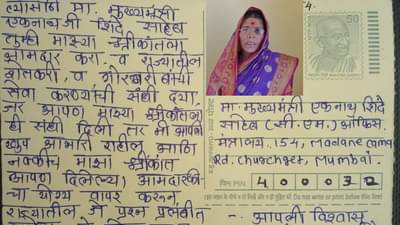 त्यासाठी मा. मुख्यमंत्री
एकनाथजी शिंदे साहेब
तुम्ही माझ्या श्रीकांतला
आमदार करा व राज्यातील
शेतकरी, व गोरगरीबांची
सेवा करण्याची संधी द्या.
जर आपण माझ्या श्रीकांतला
ही संधी दिली तर मी आपली
खुप आभारी राहील आणि
नक्कीच माझा श्रीकांत
आपण दिलेल्या आमदारकी
चा योग्य वापर करून
राज्यातील जे प्रश्न प्रलंबीत
50
मा. मुख्यमंत्री एकनाथ शिंदे
साहेब (सी. एम.) ऑफिस
मंत्रालय, 154, Madame Cama
Rd. Churchgate, Mumbai.
पिन PIN
400032
आपली विश्वासू